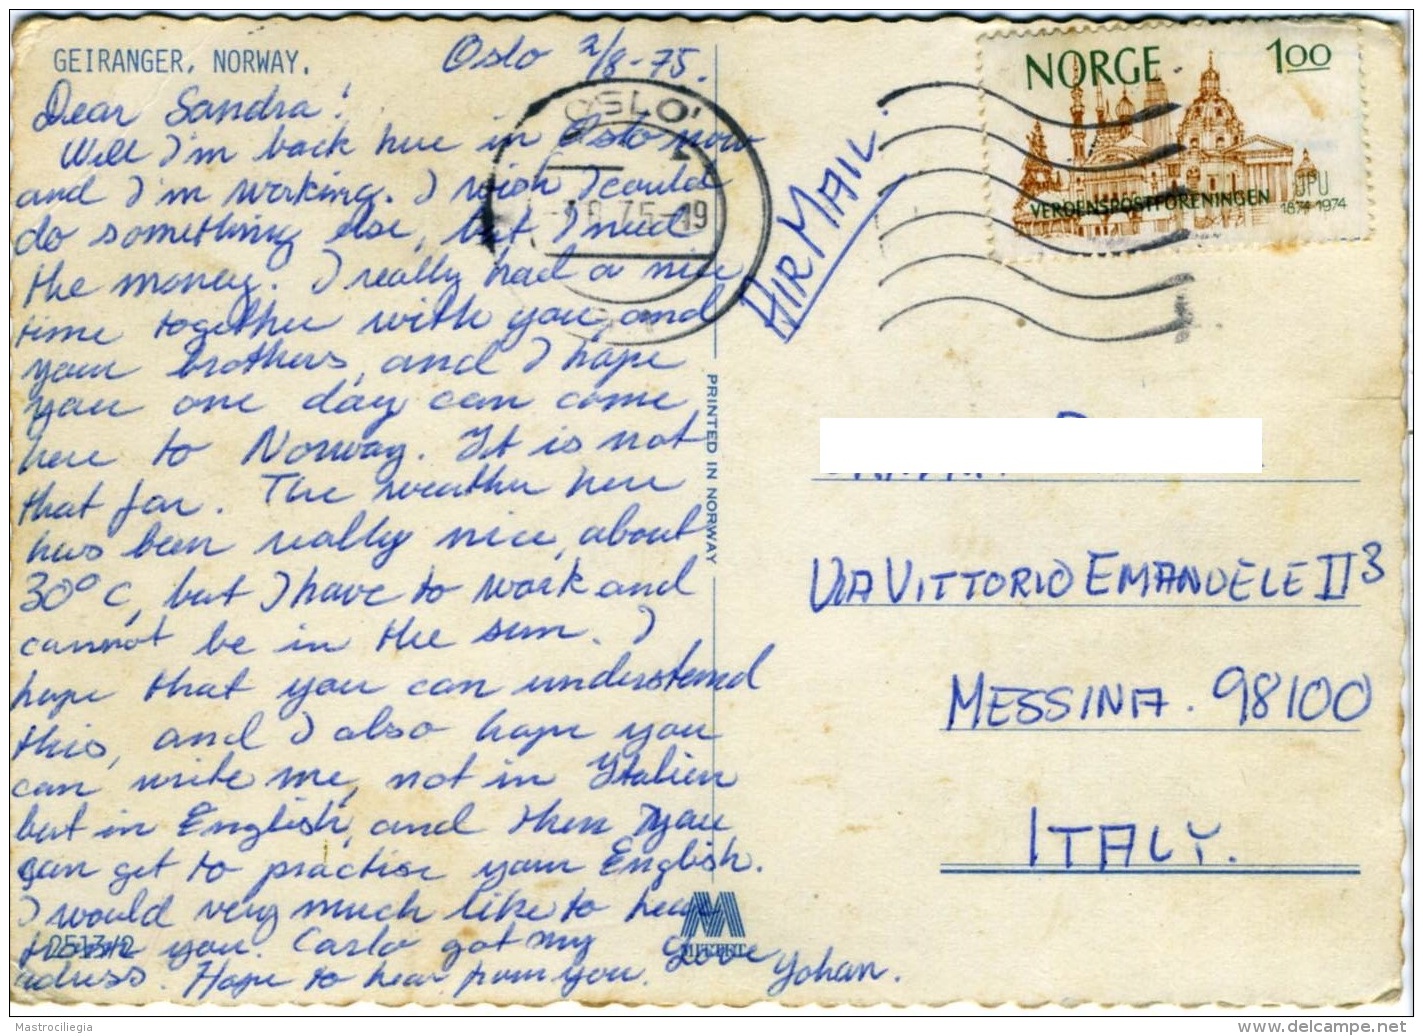 GEIRANGER, NORWAY.
Oslo 2/8-75.
Dear Sandra!
Well I'm back here in Oslo now
and I'm working. I wish I could
do something else, but I need
the money. I really had a nice
time together with you, and
your brothers, and I hope
you one day can come
here to Norway. It is not
that far. The weather here
has been really nice, about
30° C, but I have to work and
cannot be in the sun. I
hope that you can understand
this, and I also hope you
can write me, not in Italien
but in English, and then you
can get to practise your English.
I would very much like to hear
from you. Carlo got my
adress. Hope to hear from you. Love Yohan.
2513/2
MITTET
PRINTED IN NORWAY
OSLO
-3.8.75-19
AIR MAIL.
NORGE 1.00
VERDENSPOSTFORENINGEN
UPU
1874-1974
VIA VITTORIO EMANUELE II 3
MESSINA. 98100
ITALY.
Mastrociliegia
www.delcampe.net